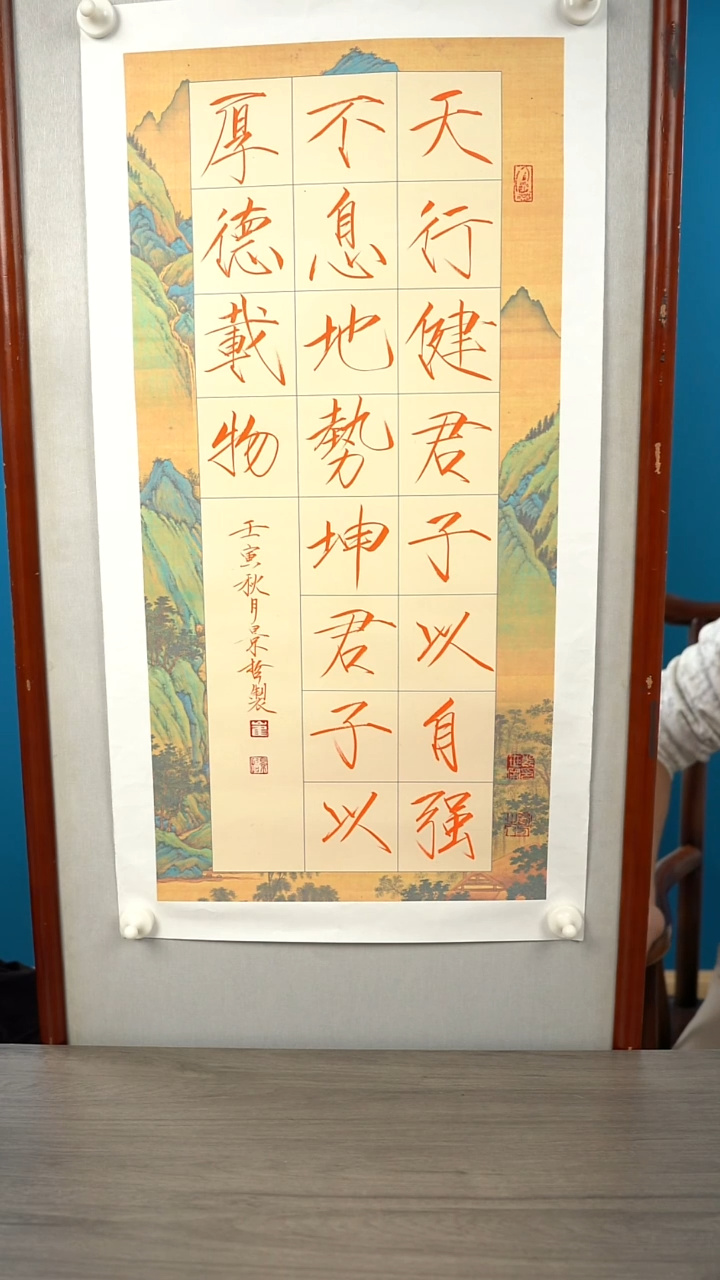 天行健君子以自强
不息地勢坤君子以
厚德載物
壬寅秋月景哲製